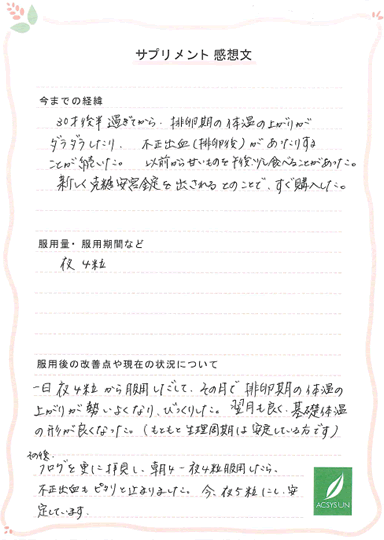 サプリメント 感想文
今までの経緯
30才後半過ぎてから、排卵期の体温の上がりが
ダラダラしたり、不正出血(排卵後)があったりする
ことが続いた。以前から甘いものを午後少し食べることがあった。
新しく克糖安宮錠を出されるとのことで、すぐ購入した。
服用量・服用期間など
夜 4粒
服用後の改善点や現在の状況について
一日夜4粒から服用しだして、その月で排卵期の体温の
上がりが勢いよくなり、びっくりした。翌月も良く、基礎体温
の形が良くなった。(もともと生理周期は安定している方です)
その後、
ブログを更に拝見し、朝4-夜4粒服用したら、
不正出血もピタリと止まりました。今、夜5粒にし、安
定しています。
ACSYSUN